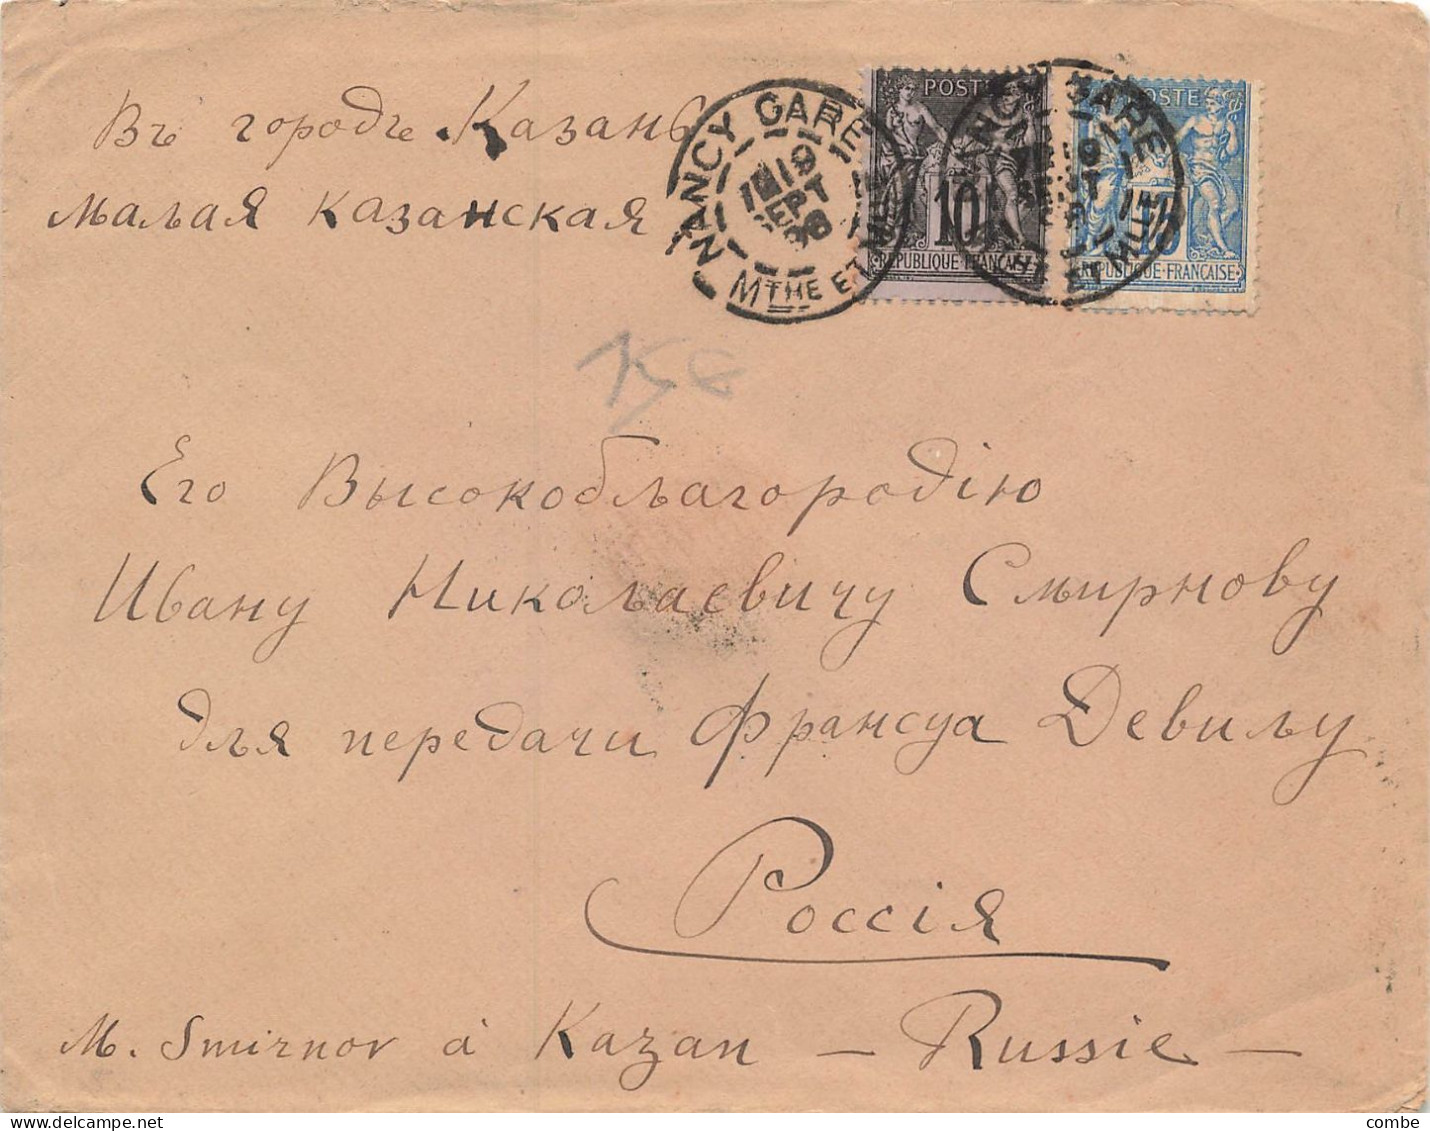 Въ городъ Казань
малая казанская
NANCY GARE
19
SEPT
98
MTHE ET
POSTE
10
REPUBLIQUE FRANÇAISE
NANCY GARE
19
SEPT
ET M
POSTE
15
REPUBLIQUE FRANÇAISE
158
Его Высокоблагородію
Ивану Николаевичу Смирнову
для передачи Франсуа Девилу
Россія
M. Smirnov à Kazan — Russie —
combe